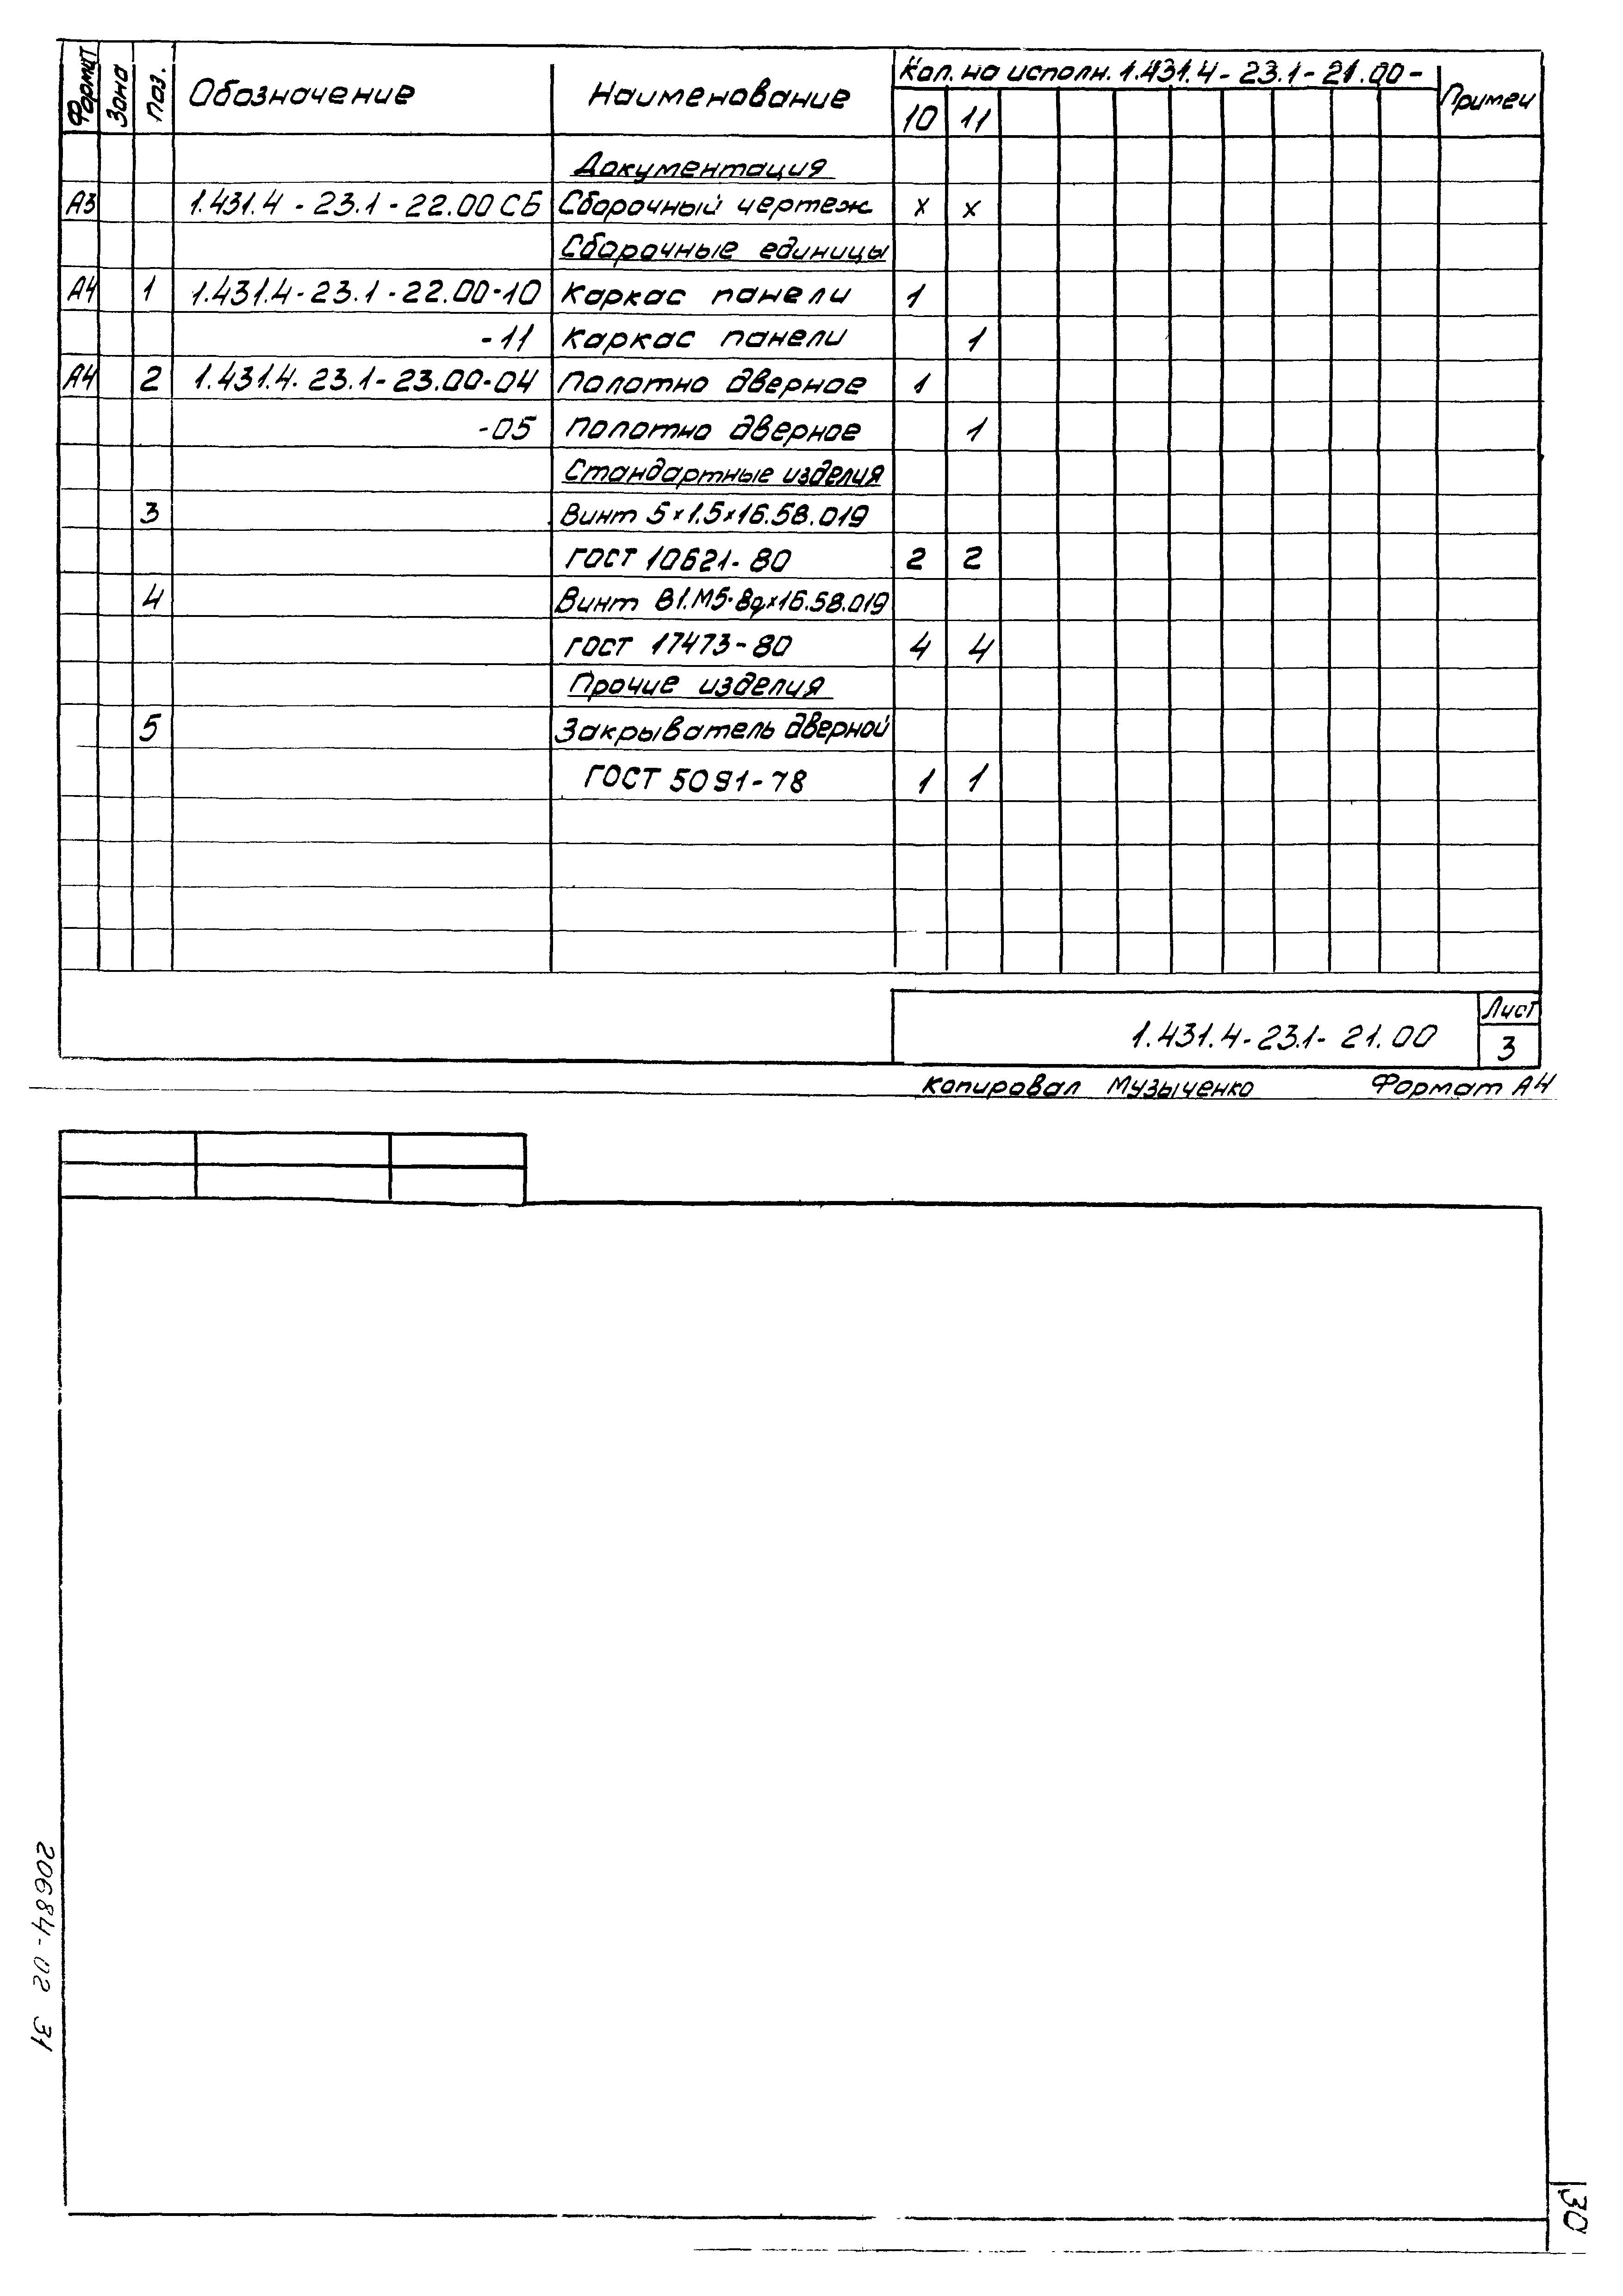 Формат Зона Поз. Обозначение Наименование Кол. на исполн. 1.431.4-23.1-21.00- Примеч
10 11
Документация
А3 1.431.4-23.1-22.00 СБ Сборочный чертеж х х
Сборочные единицы
А4 1 1.431.4-23.1-22.00-10 Каркас панели 1
-11 Каркас панели 1
А4 2 1.431.4-23.1-23.00-04 Полотно дверное 1
-05 Полотно дверное 1
Стандартные изделия
3 Винт 5×1.5×16.58.019
ГОСТ 10621-80 2 2
4 Винт В1.М5-8q×16.58.019
ГОСТ 17473-80 4 4
Прочие изделия
5 Закрыватель дверной
ГОСТ 5091-78 1 1
1.431.4-23.1-21.00
Лист
3
Копировал Музыченко Формат А4
20684-02 31
30